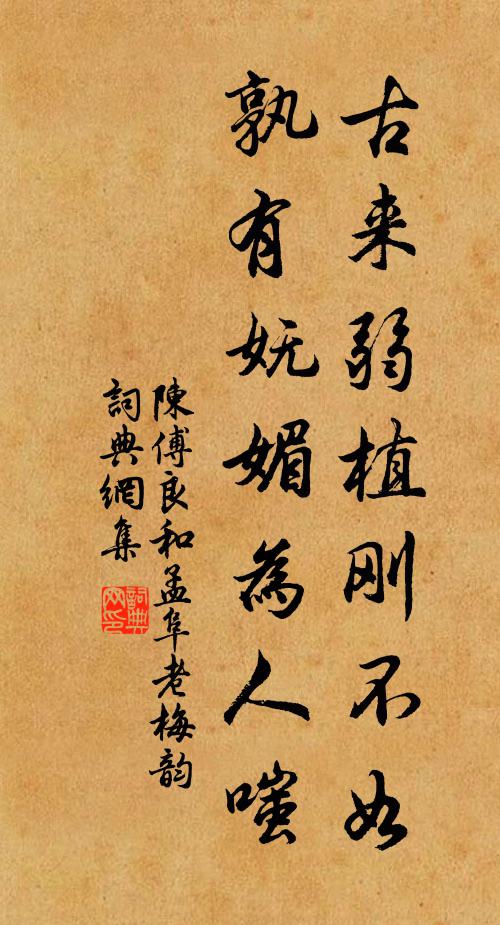 古来弱植刚不如
孰有妩媚為人嗤
陳傅良和孟阜老梅韵
詞典網集
詞典網印